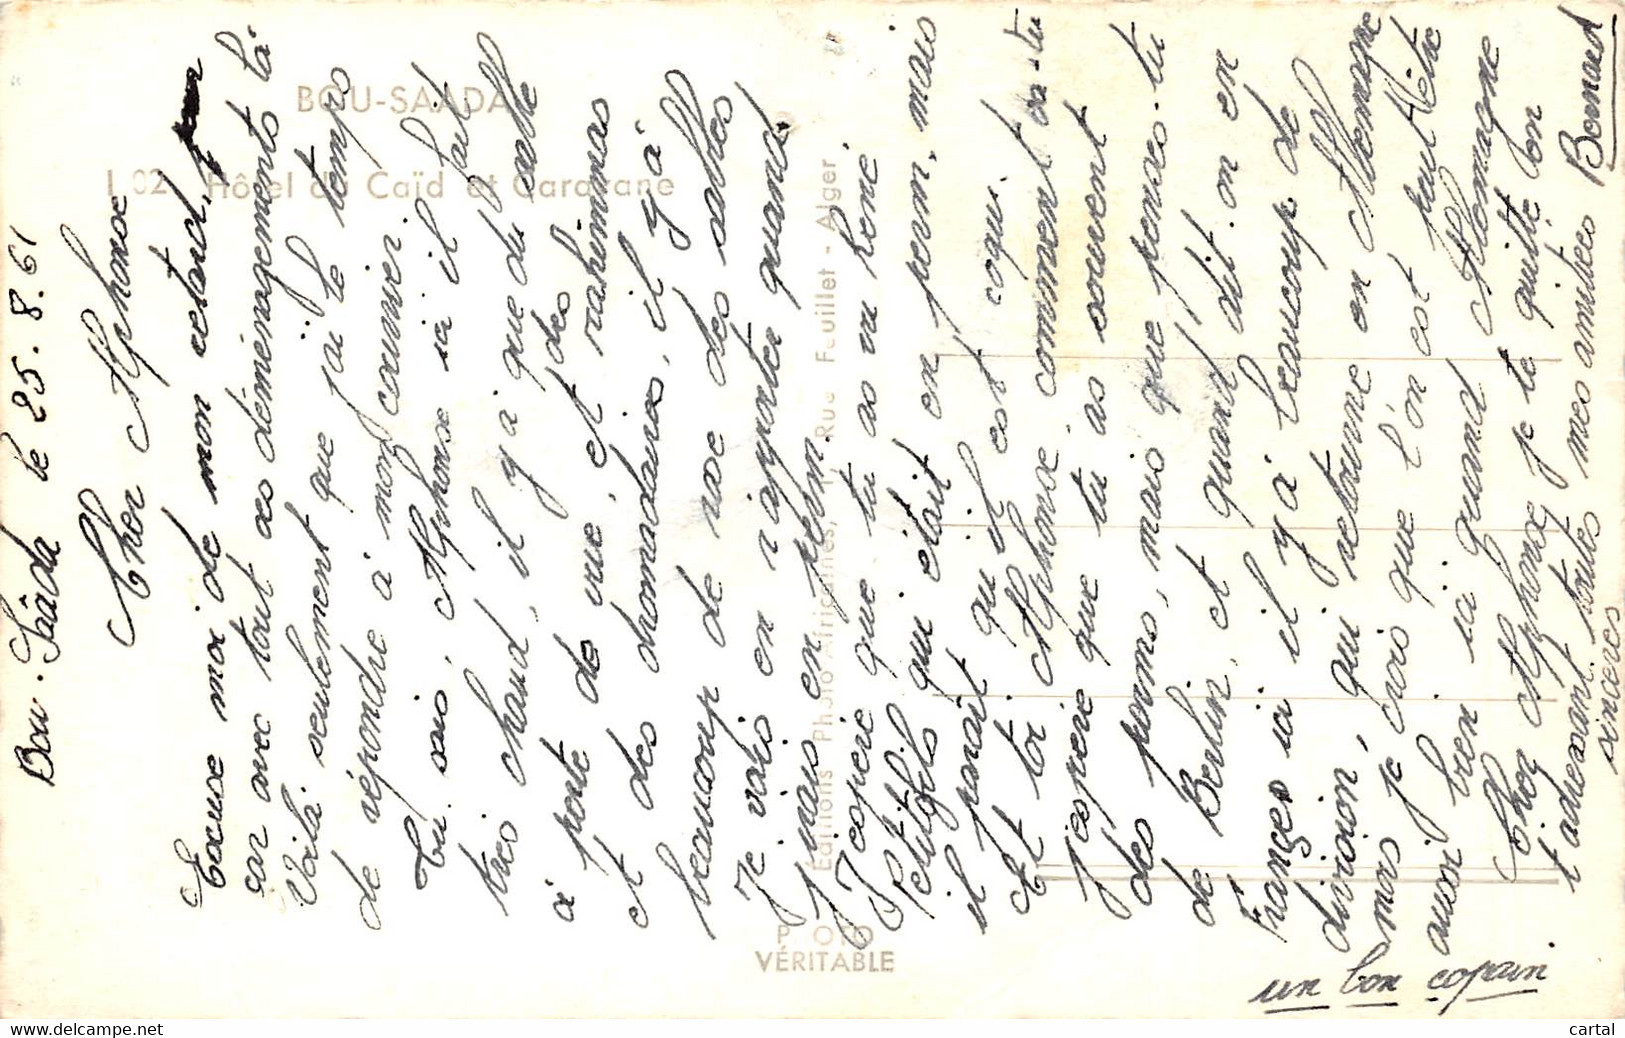 Bou-Saâda le 25.8.61
Cher Alphonse
Excuse moi de mon retard,
car avec tout ses déménagements là
Voilà seulement que j'ai le temps
de répondre à mon courrier.
Tu sais, Alphonse ici il fait
tres chaud, il y à que du sable
à perte de vue, et des
et des dromadaires, il y à
beaucoup de race des sables
Je vais en raporter quand
j'irais en perm.
J'espère que tu as vu René
Petitfils qui était en perm, mais
il parait qu'il est cocu.
Et toi Alphonse, comment va-tu
j'espère que tu as souvent
des perms, mais que penses-tu
de Berlin, et quand dit-on en
France, ici il y à beaucoup de
division, qui retourne en Allemagne
mais je crois que l'on est peut être
aussi bien ici quand Allemagne
Cher Alphonse je te quitte en
t'adressant toutes mes amitiées
sincères
Bernard
un bon copain.
BOU-SAADA
Hôtel du Caïd et Caravane
Editions Photo Africaines, Rue Feuillet - Alger
PHOTO
VÉRITABLE
www.delcampe.net
cartal